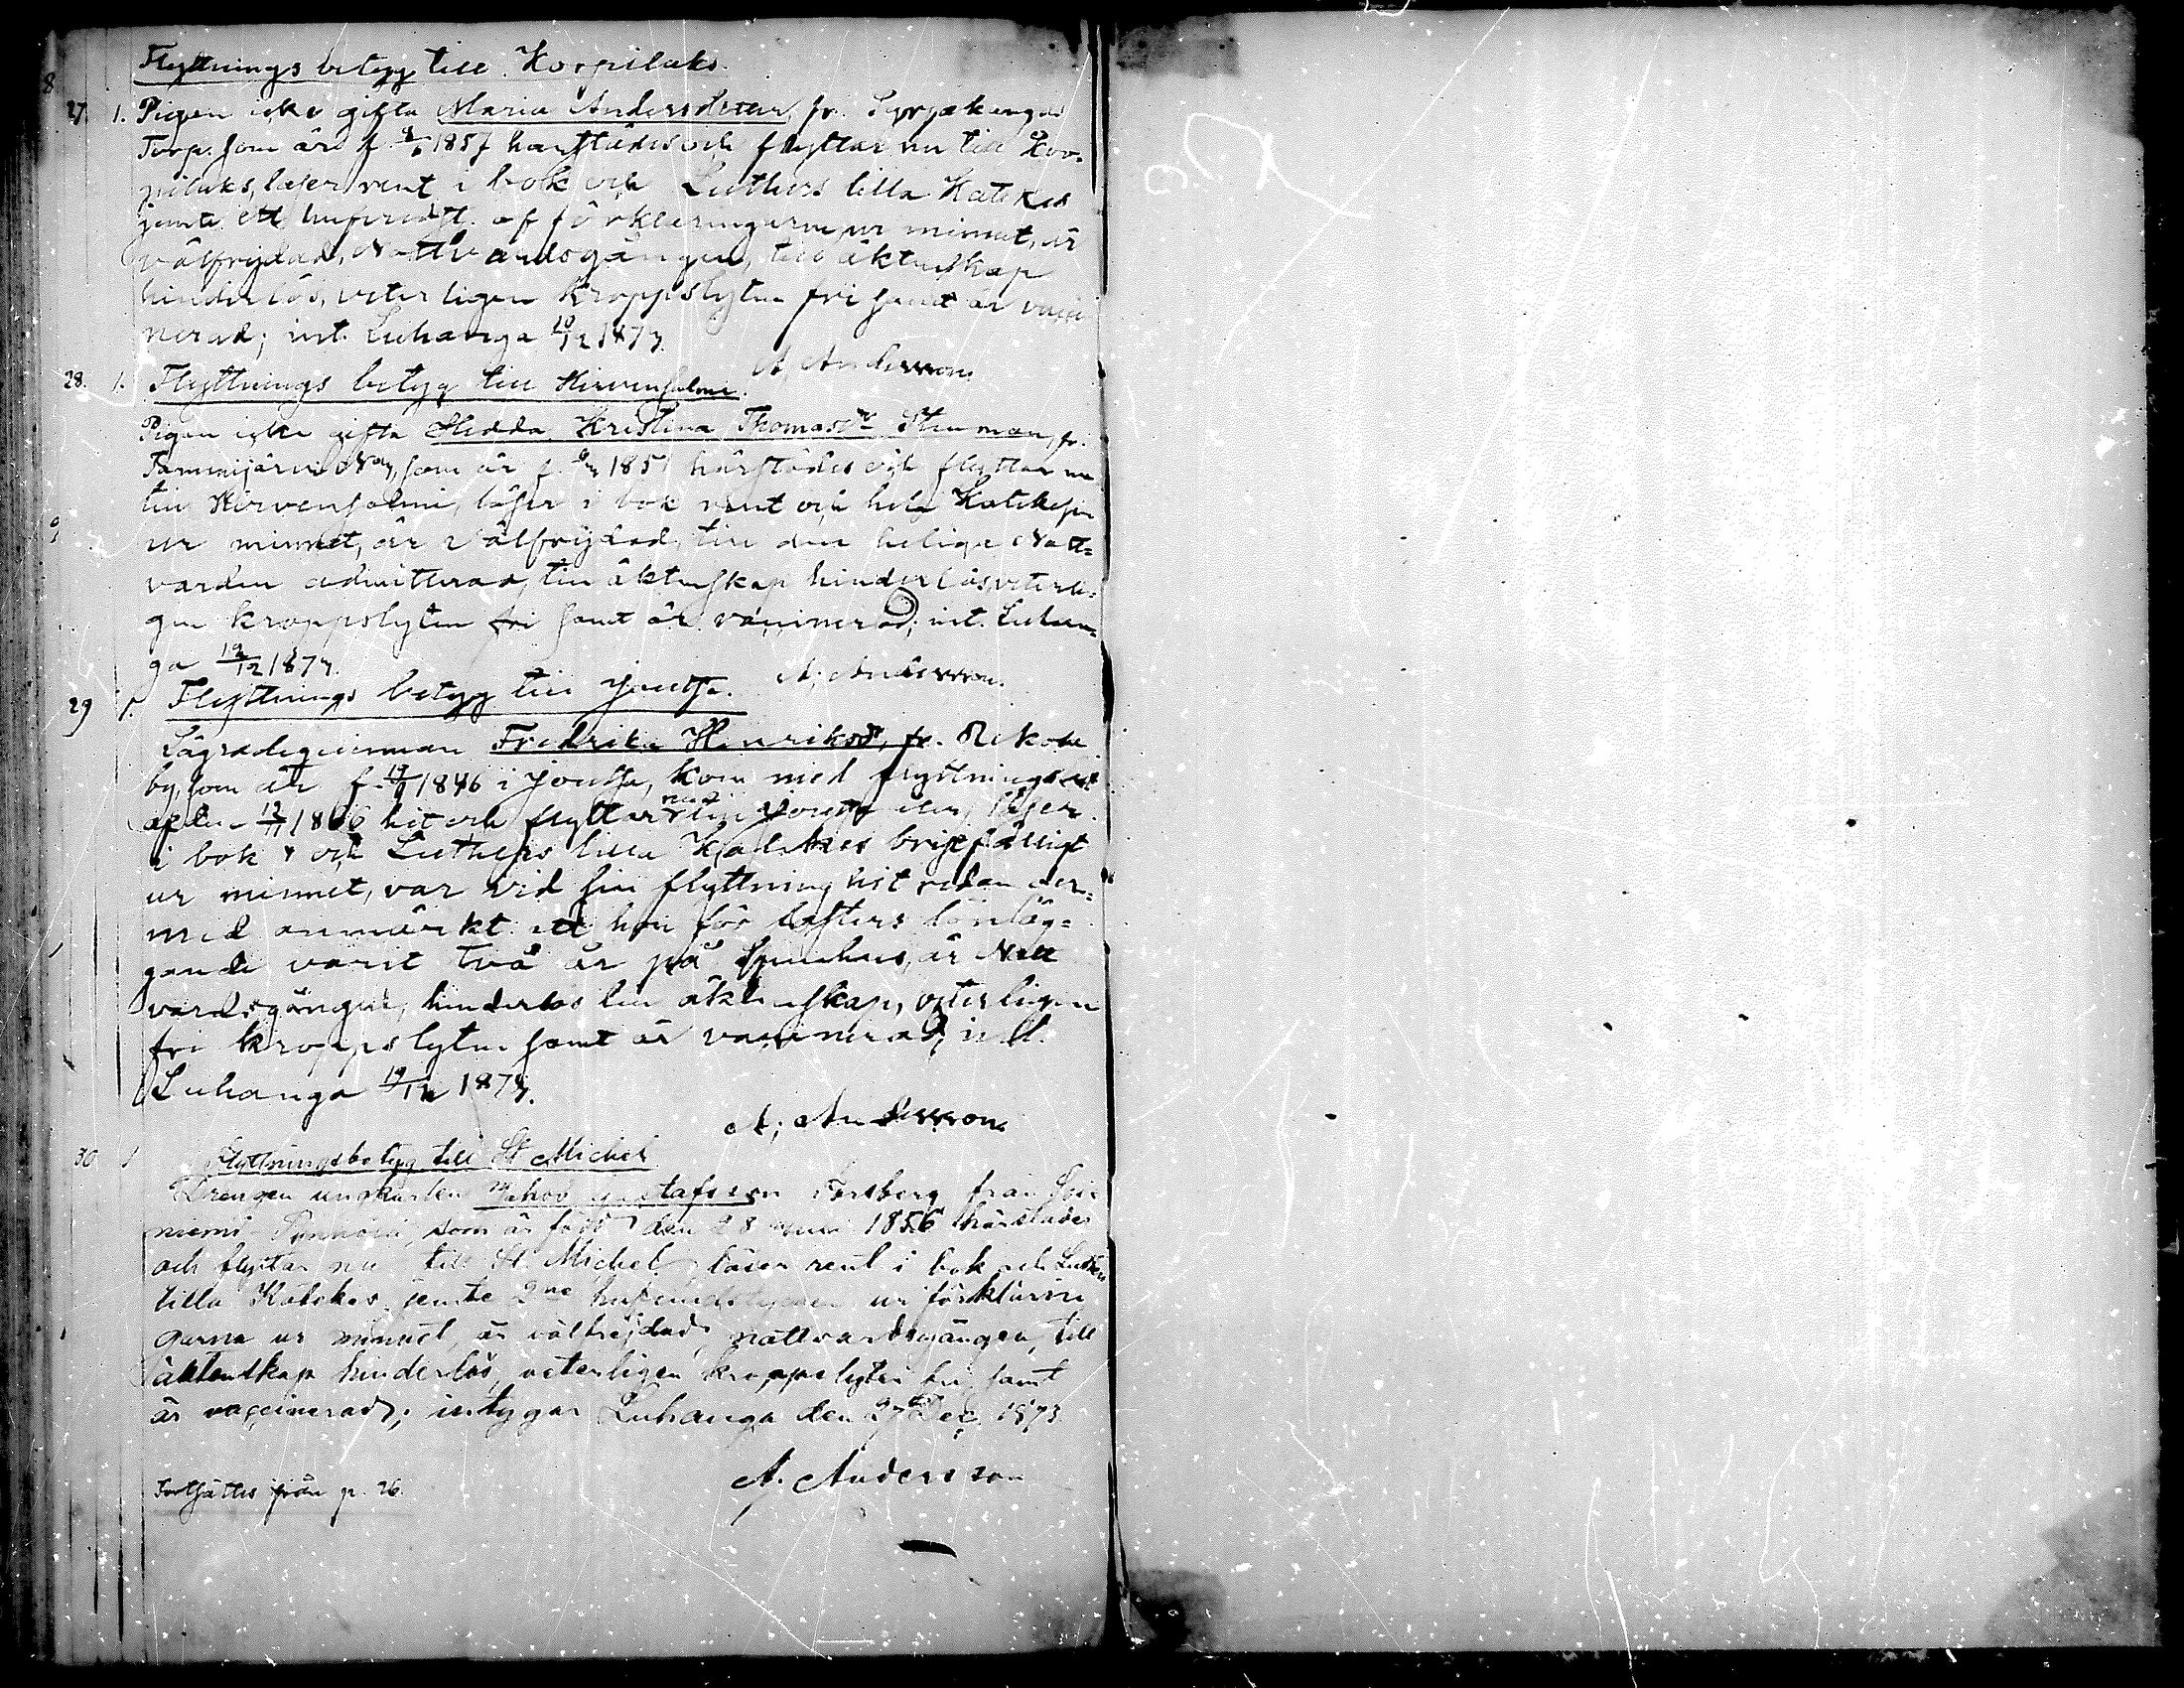 Flyttnings betyg till Korpilaks.
27. 1. Pigan icke gifta Maria Andersdotter, fr.
Torp. som är f. 1857 härstädes och flyttar nu till Kor-
pilaks, läser rent i bok och Luthers lilla Katekes
jemte ett hufvudst. af förklaringarne ur minnet, är
välfrejdad, Nattvardsgången, till äktenskap
hinderlös, veterligen kroppslyten fri samt är vacci
nerad; int. Luhanga 10/12 1873.
A. Andersson.
28. 1. Flyttnings betyg till Hirvensalmi.
Pigan icke gifta Hedda Kristina Thomasdr Stenman, fr.
Tammijärvi som är f. 1851 härstädes och flyttar nu
till Hirvensalmi, läser i bok rent och hela Katekesen
ur minnet, är välfrejdad, till den heliga Natt=
varden admitterad, till äktenskap hinderlös, veterli=
gen kroppslyten fri samt är vaccinerad; int. Luhan=
ga 19/12 1873.
A. Andersson.
29 1. Flyttnings betyg till Joutsa.
Fredrika Henriksdr, fr.
by, som är f. 19/9 1846 i Joutsa, kom med flyttningsbet
af den 12/11 1866 hit och flyttar nu till Joutsa läser
i bok och Luthers lilla Katekes bristfälligt
ur minnet, var vid sin flyttning hit redan der=
med anmärkt att hon för fosters lönläg=
gande varit två år på spinhus, är Natt
vardsgången, hinderlös till äktenskap, veterligen
fri kroppslyten samt är vaccinerad; int.
Luhanga 19/12 1873.
A. Andersson
30 1 Flyttningsbetyg till St Michel
Drengen ungkarlen Jakob Gustafsson Forsberg från
niemi som är född den 28 1856 härstädes
och flyttar nu till St. Michel, läser rent i bok och Luthers
lilla Katekes jemte 2ne hufvudstycken ur förklarin
garna ur minnet, är välfrejdad, nattvardsgången, till
äktenskap hinderlös, veterligen kroppslyten fri samt
är vaccinerad; intygar Luhanga den 27 Dec. 1873
A. Andersson
Fortsättes från p. 26.